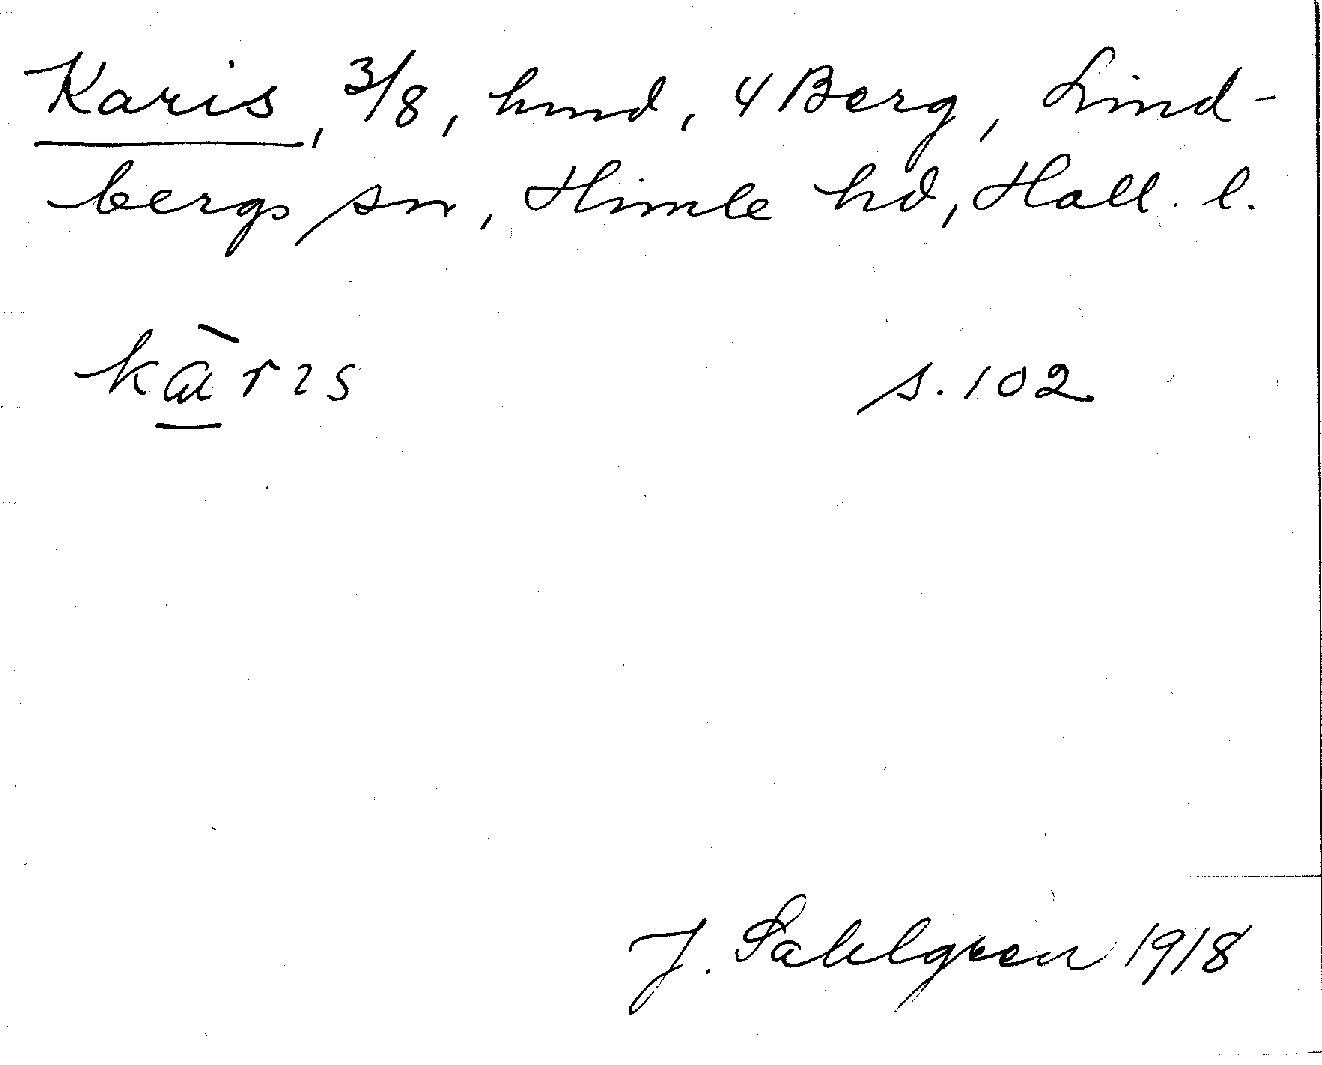 Karis, 3/8, hmd, 4 Berg, Lind-
bergs sn, Himle hd, Hall. l.
kàrıs s. 102
J. Sahlgren 1918